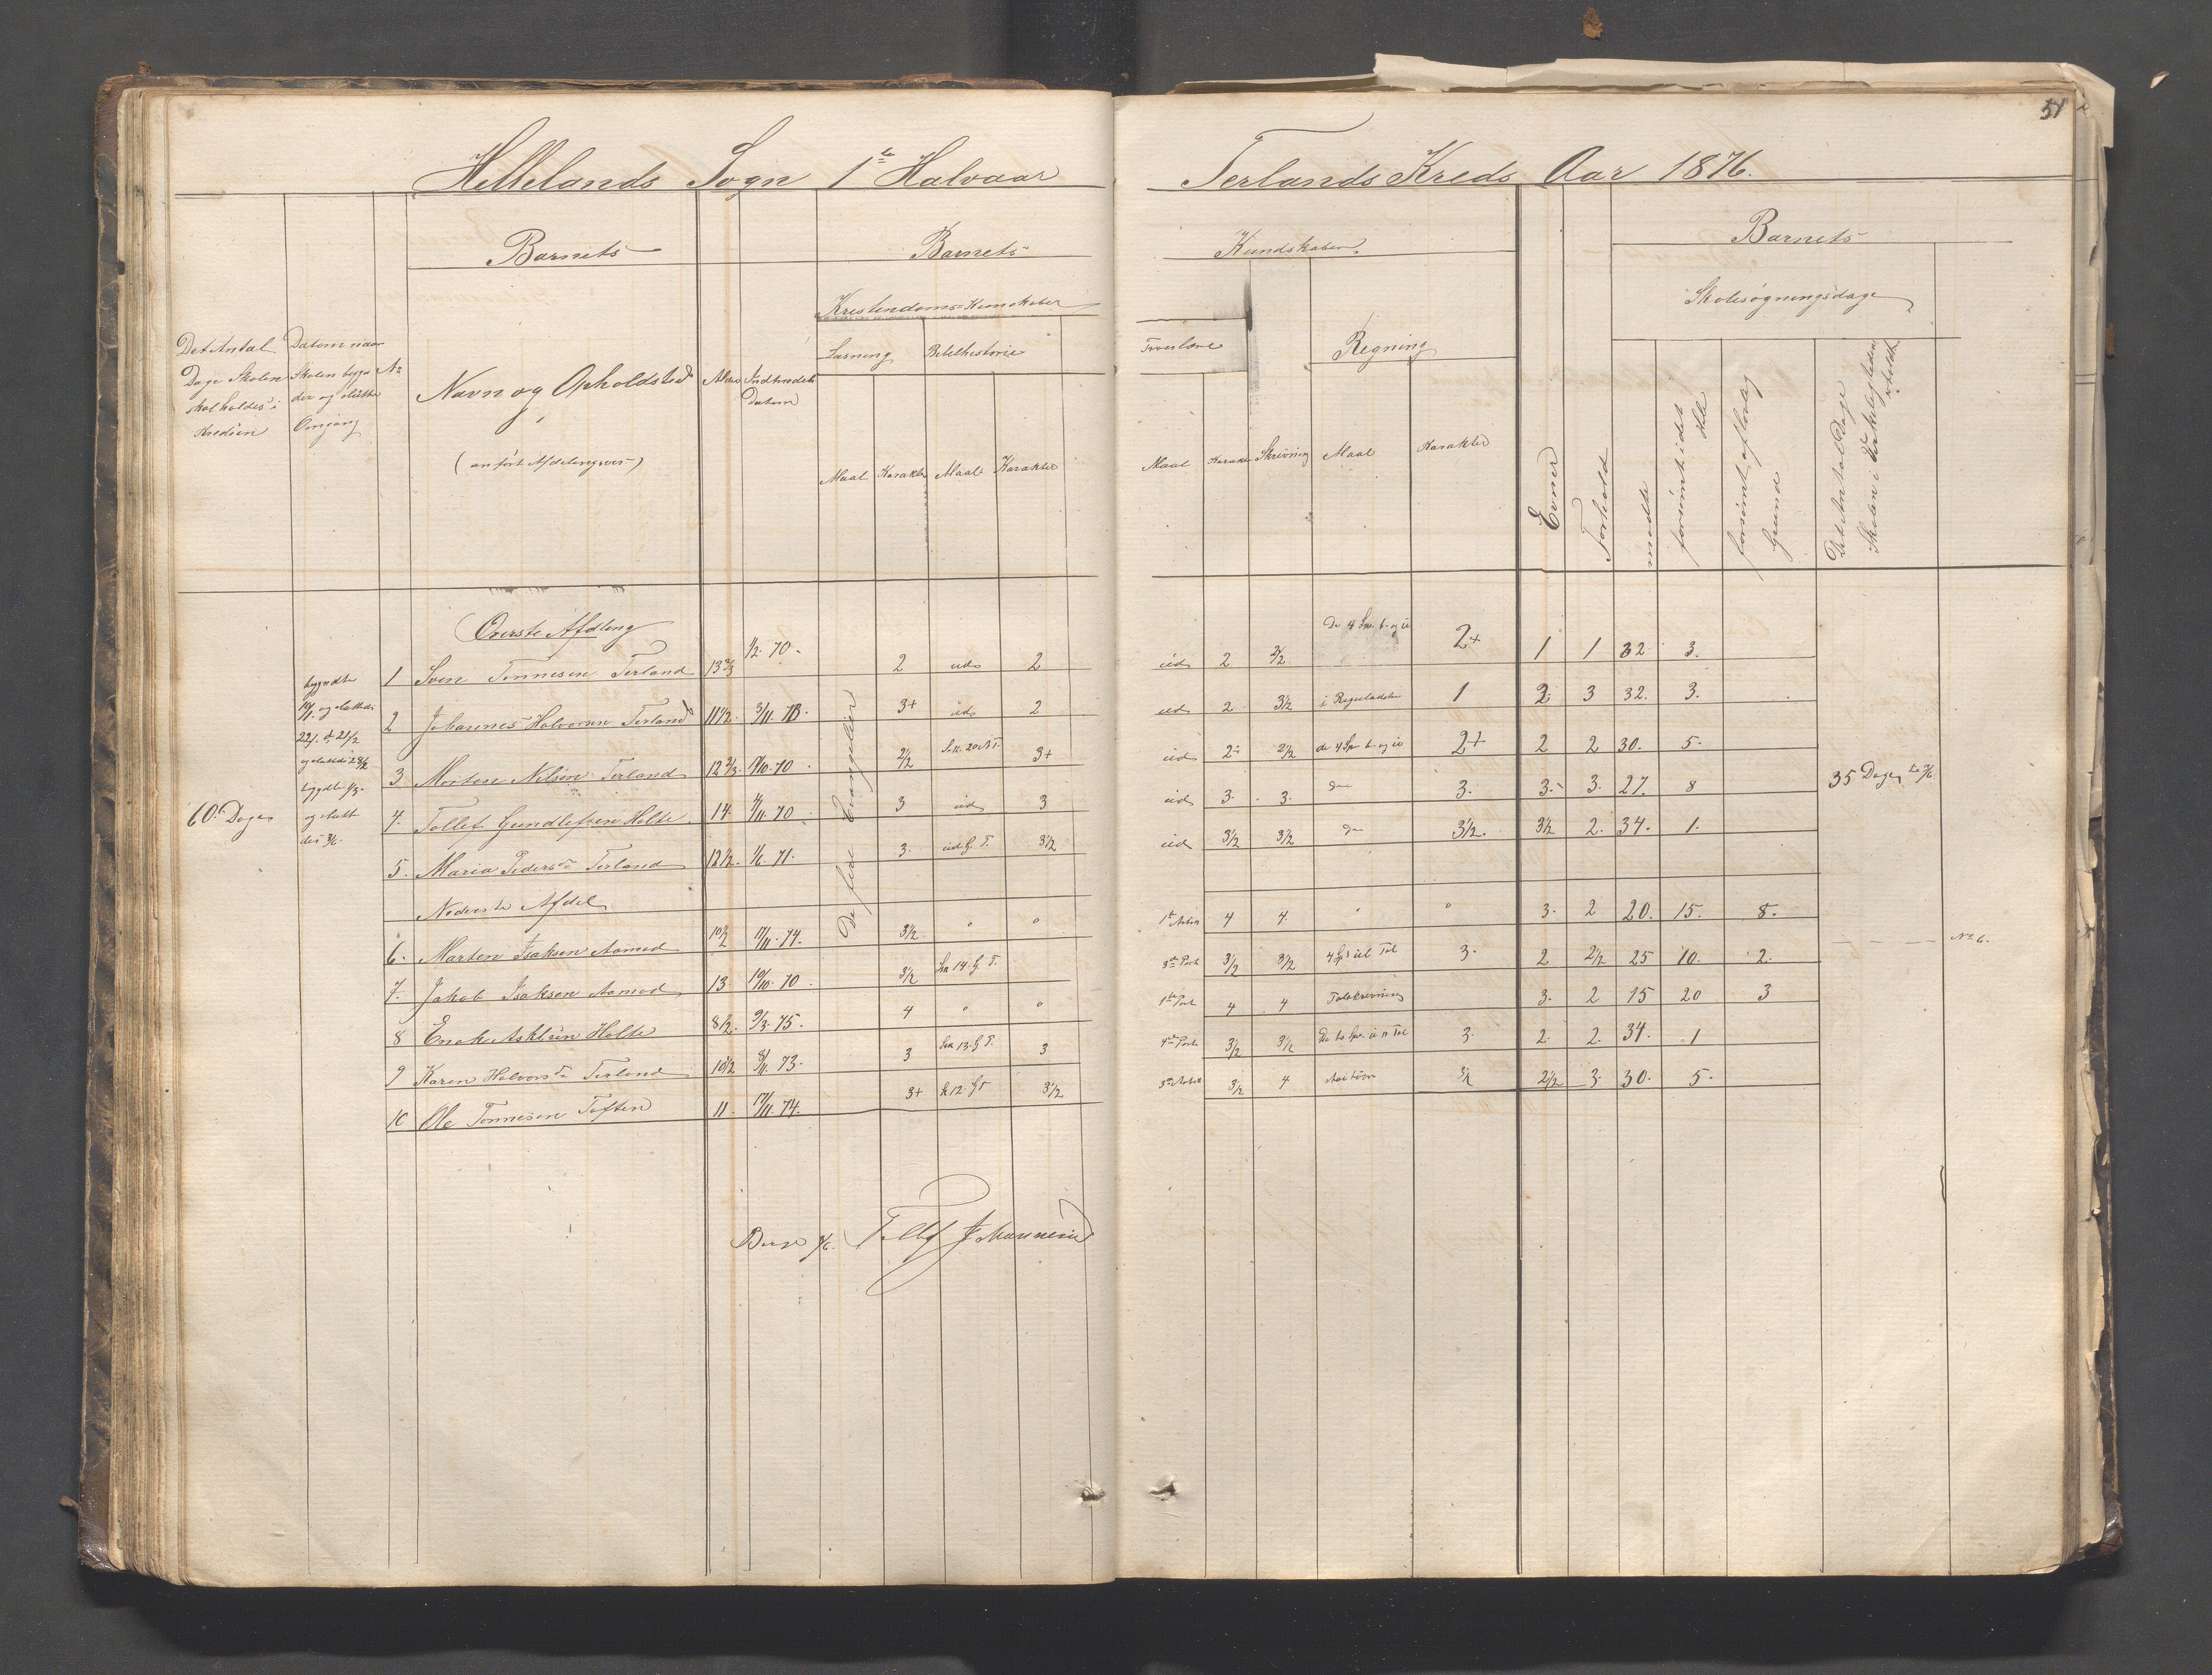 51
Hellelands Sogn 1te Halvaar Terlands Kreds Aar 1876.
Barnets Barnets Kundskaber. Barnets
Kristendoms-Kunskaber Skolesøgningsdage
Det Antal Dage Skolen skal holdes i Kredsen
Datum naar Skolen begyn der og slutte Omgang
No
Navn og Opholdsted
(anført Afdelingsvis)
Alder Indtrædels Datum
Læsning Bibelhistorie Troeslære Regning
Maal Karakter Maal Karakter
Maal Karakt Skrivning Maal Karakter
Evner
Forhold
mødte
forsømt i det Hele
forsømt af lovlig Grund
Det Antal Dage Skolen i Virkeligheden er holdt
60 Dage
begyndte
og sluttede
35 Dage
De fire Evangelier
Øverste Afdeling
1 Sven Tønnesen Terland 13 2/3 1/2. 70. 2 ud 2 ud 2 2/2 De 4 Sp. b. og u 2+ 1 1 32 3.
2 Johannes Halvorsen Terland 11 1/2. 3/11. 73. 3+ ud 2 ud 2 3 1/2 i Reguladetri 1 2 3 32. 3.
3 Morten Nilsen Terland 12 2/3. 17/10. 70 2 1/2 3+ ud 2 2 1/2 de 4 Sp. b. og u 2+ 2 2 30. 5.
4. Tollef Gundlefsen Holte 14. 4/11. 70 3 ud 3 ud 3. 3. do 3. 3. 3. 27. 8
5. Maria Pedersdr Terland 12 1/2. 1/6. 71. 3. ud G. T. 3 1/2 ud 3 1/2 3 1/2 do 3 1/2. 3 1/2 2. 34. 1.
Nederste Afdel
6. Marten Isaksen Aamod 10 1/2 17/11. 74. 3 1/2 " " 4 4. " " 3. 2 20. 15. 8. No 6.
7. Jakob Isaksen Aamod 13 19/10. 70 3 1/2 14. G. T. 3die Part 3 1/2 3 1/2 3. 2 2 1/2 25 10. 2.
8 Enok Asklsen Holte 8 1/2. 9/3. 75. 4 " " 1ste Part 4 4 Talskrivning 3. 2 15 20 3
9 Karen Halvorsdr Terland 10 1/2 8/11. 73. 3 13. G. T. 3 4de Part 3 1/2 3 1/2 3. 2. 2. 34. 1
10 Ole Tønnesen Toften 11. 17/11. 74. 3+ 12. G. T. 3 1/2 3 1/2 4 3 1/2 2 1/2 3. 30. 5.
Berge Tollef Johannesen